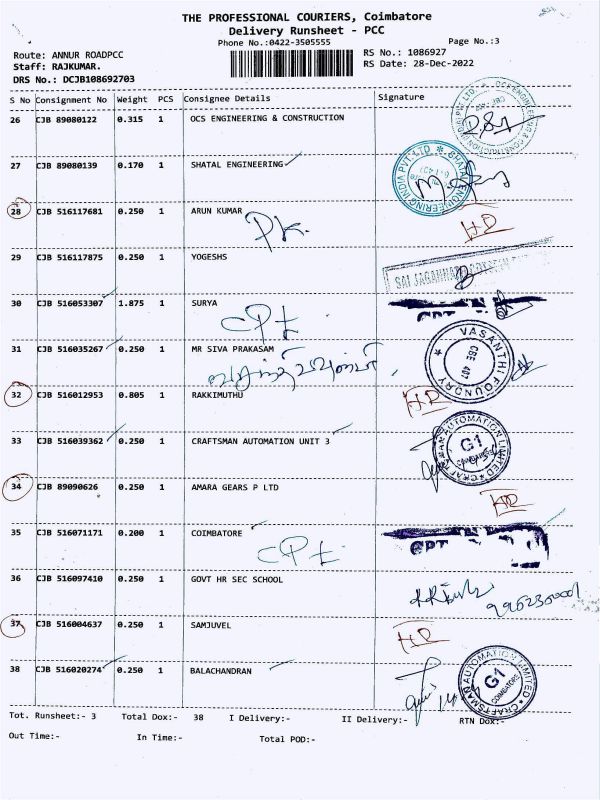 THE PROFESSIONAL COURIERS, Coimbatore
Delivery Runsheet - PCC
Phone No.:0422-3505555
Page No.:3
Route: ANNUR ROADPCC
RS No.: 1086927
Staff: RAJKUMAR.
RS Date: 28-Dec-2022
DRS No.: DCJB108692703
S No Consignment No Weight PCS Consignee Details Signature
26 CJB 89080122 0.315 1 OCS ENGINEERING & CONSTRUCTION
27 CJB 89080139 0.170 1 SHATAL ENGINEERING
28 CJB 516117681 0.250 1 ARUN KUMAR
PK.
29 CJB 516117875 0.250 1 YOGESHS
30 CJB 516053307 1.875 1 SURYA
CPT
31 CJB 516035267 0.250 1 MR SIVA PRAKASAM
VASANTHI FOUNDRY
CBE 407
32 CJB 516012953 0.805 1 RAKKIMUTHU
33 CJB 516039362 0.250 1 CRAFTSMAN AUTOMATION UNIT 3
CRAFTSMAN AUTOMATION LIMITED
G1
COIMBATORE
34 CJB 89090626 0.250 1 AMARA GEARS P LTD
35 CJB 516071171 0.200 1 COIMBATORE
CPT
36 CJB 516097410 0.250 1 GOVT HR SEC SCHOOL
37 CJB 516004637 0.250 1 SAMJUVEL
38 CJB 516020274 0.250 1 BALACHANDRAN
CRAFTSMAN AUTOMATION LIMITED
G1
COIMBATORE
Tot. Runsheet:- 3 Total Dox:- 38 I Delivery:- II Delivery:- RTN Dox:-
Out Time:- In Time:- Total POD:-